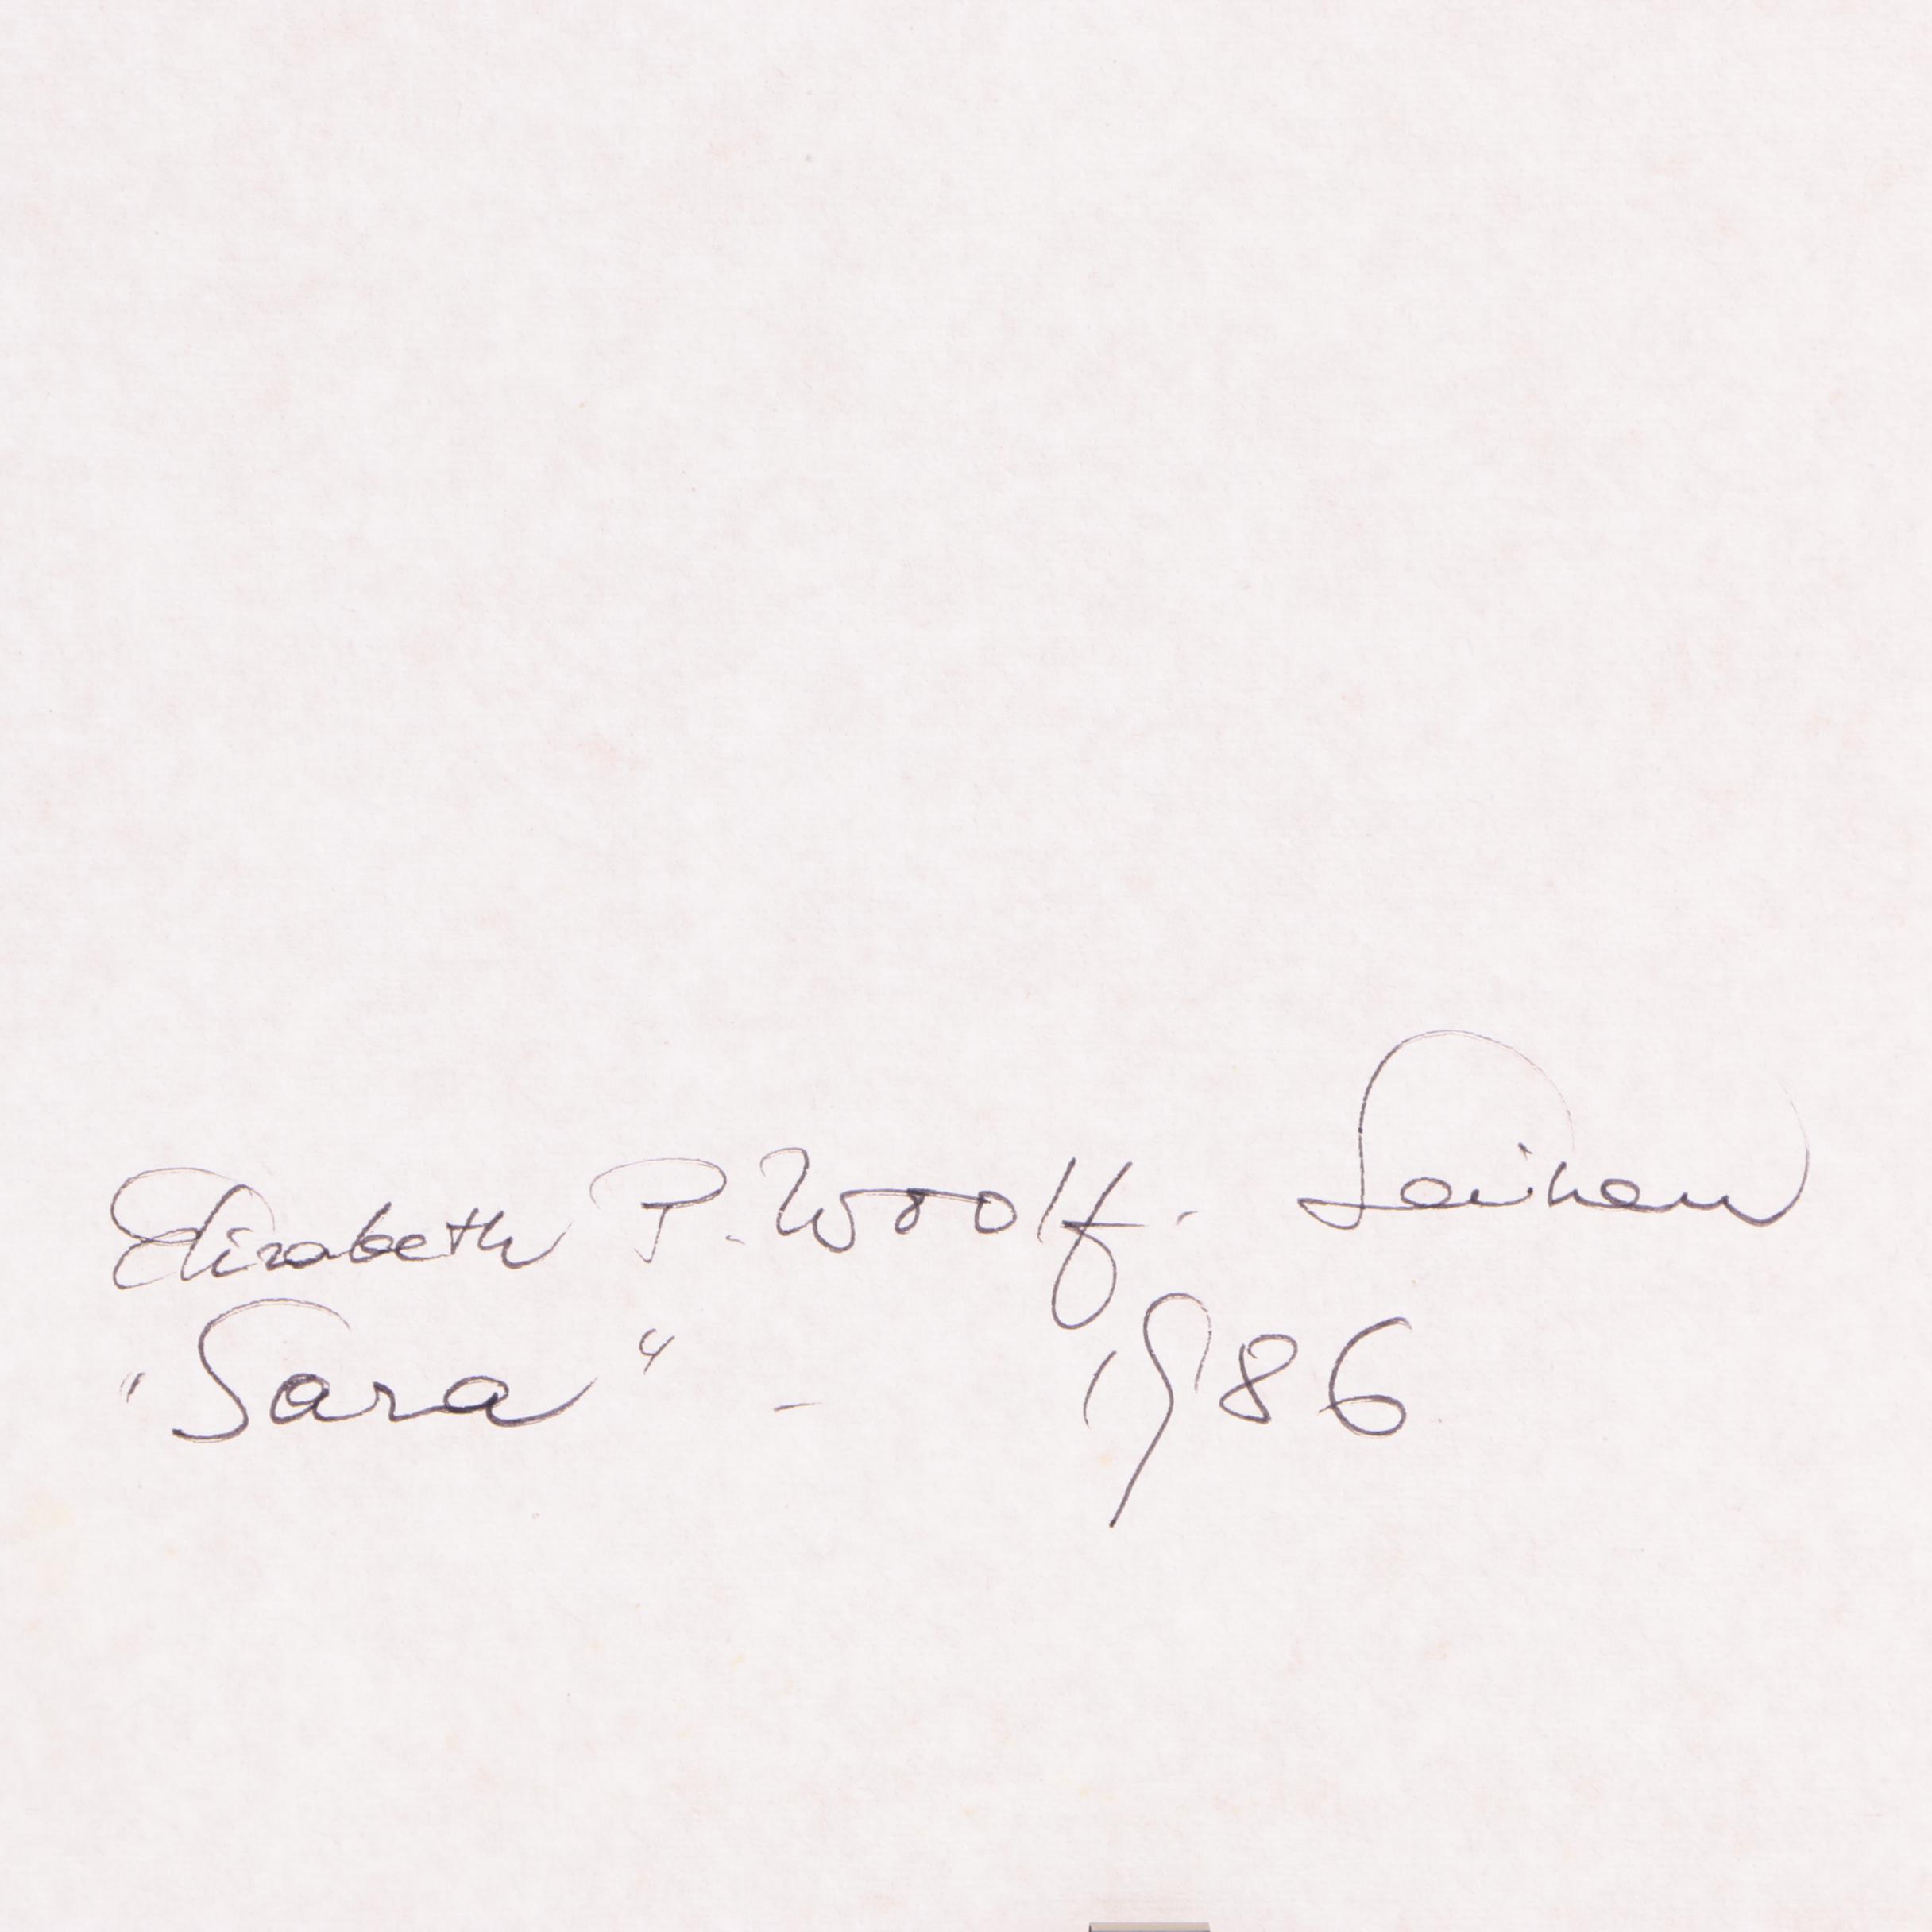 Elizabeth P. Woolf.
"Sara" - 1986